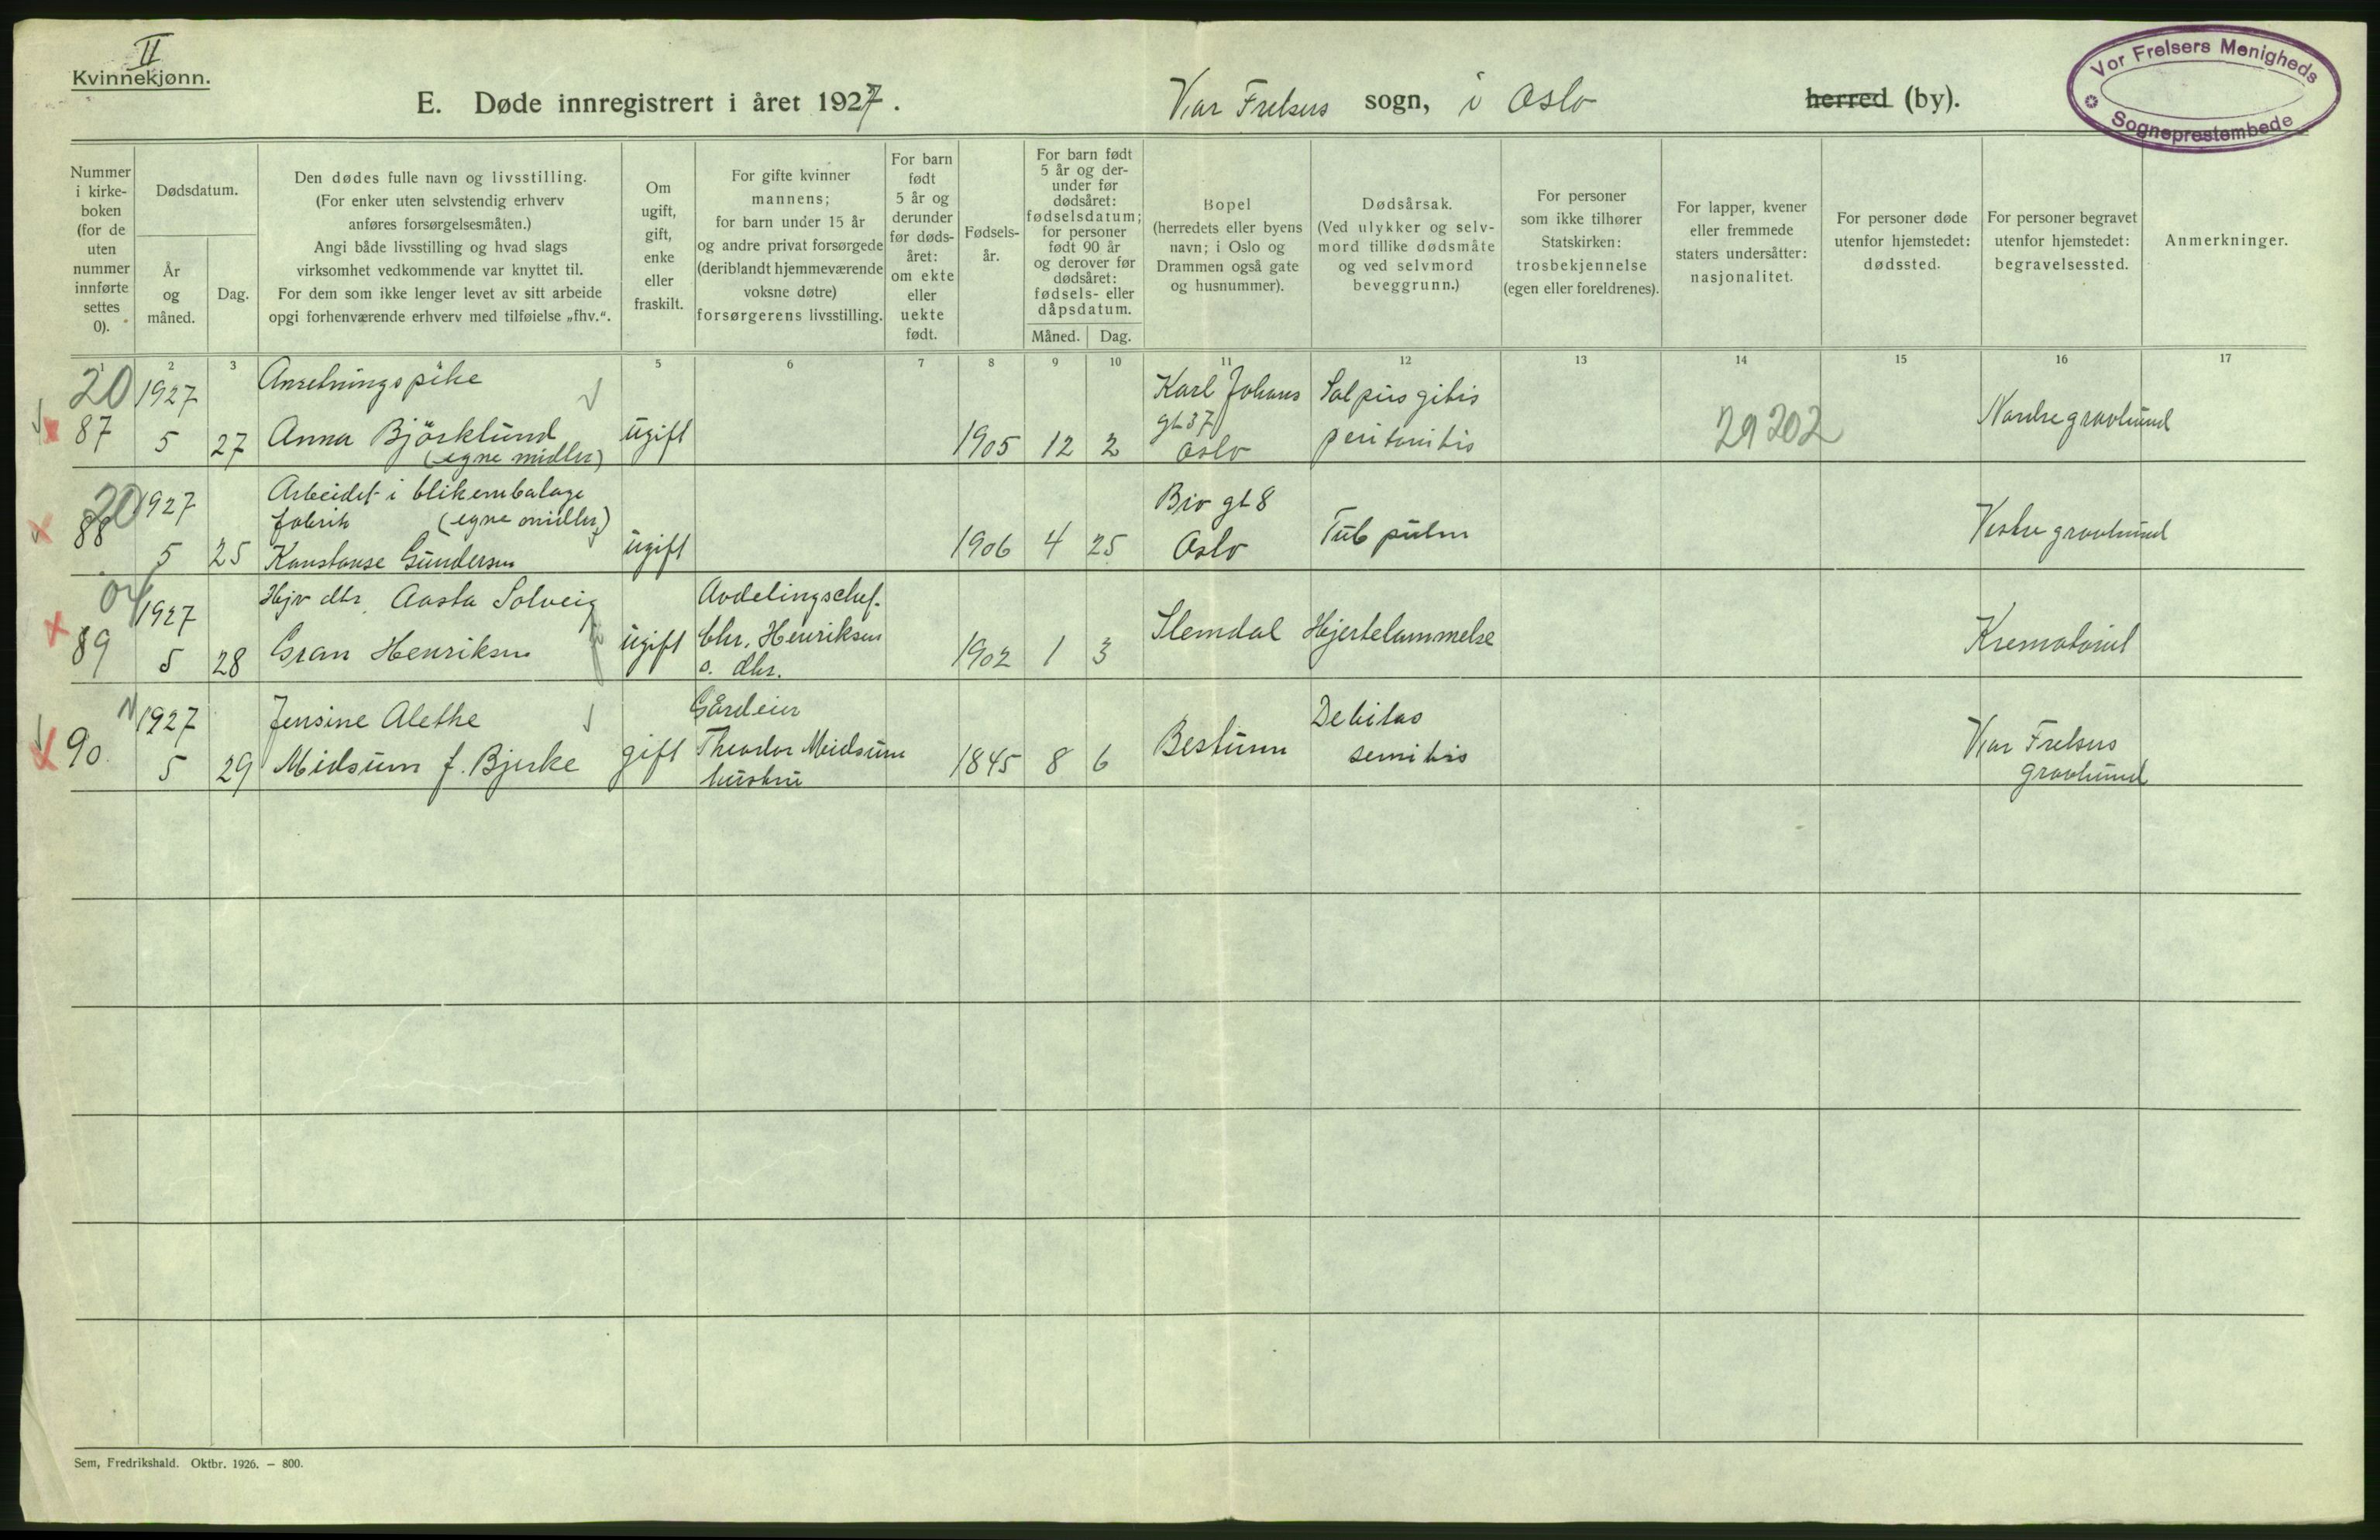 II
Kvinnekjønn.
E. Døde innregistrert i året 1927.
Vár Frelsers sogn, i Oslo
herred (by).
Vor Frelsers Menigheds
Sogneprestembede
Nummer
i kirke-
boken
(for de
uten
nummer
innførte
settes
0).
Dødsdatum.
År
og
måned.
Dag.
Den dødes fulle navn og livsstilling.
(For enker uten selvstendig erhverv
anføres forsørgelsesmåten.)
Angi både livsstilling og hvad slags
virksomhet vedkommende var knyttet til.
For dem som ikke lenger levet av sitt arbeide
opgi forhenværende erhverv med tilføielse „fhv.“.
Om
ugift,
gift,
enke
eller
fraskilt.
For gifte kvinner
mannens;
for barn under 15 år
og andre privat forsørgede
(deriblandt hjemmeværende
voksne døtre)
forsørgerens livsstilling.
For barn
født
5 år og
derunder
før døds-
året:
om ekte
eller
uekte
født.
Fødsels-
år.
For barn født
5 år og der-
under før
dødsåret:
fødselsdatum;
for personer
født 90 år
og derover før
dødsåret:
fødsels- eller
dåpsdatum.
Måned. Dag.
Bopel
(herredets eller byens
navn; i Oslo og
Drammen også gate
og husnummer).
Dødsårsak.
(Ved ulykker og selv-
mord tillike dødsmåte
og ved selvmord
beveggrunn.)
For personer
som ikke tilhører
Statskirken:
trosbekjennelse
(egen eller foreldrenes).
For lapper, kvener
eller fremmede
staters undersåtter:
nasjonalitet.
For personer døde
utenfor hjemstedet:
dødssted.
For personer begravet
utenfor hjemstedet:
begravelsessted.
Anmerkninger.
1 2 3 5 6 7 8 9 10 11 12 13 14 15 16 17
20 1927 Anretningspike Karl Johans Salpingitis
87 5 27 Anna Björklund ugift 1905 12 2 gt 37 peritonitis 29202 Nordre gravlund
(egne midler) Oslo
20 1927 Arbeidet i blikembalage Bro gt 8
88 fabrik (egne midler)
5 25 Konstanse Gundersen ugift 1906 4 25 Oslo Tub pulm Vestre gravlund
04 1927 Hjv dtr. Aasta Solveig Avdelingschef.
89 5 28 Gran Henriksen ugift Chr. Henriksen 1902 1 3 Slemdal Hjertelammelse Krematoriet
s. dtr.
1927 Jensine Alethe Gårdeier Debilitas
90. 5 29 Midsum f. Bjerke gift Theodor Meidsum 1845 8 6 Bestum senilis Vár Frelsers
hustru gravlund
Sem, Fredrikshald. Oktbr. 1926. – 800.